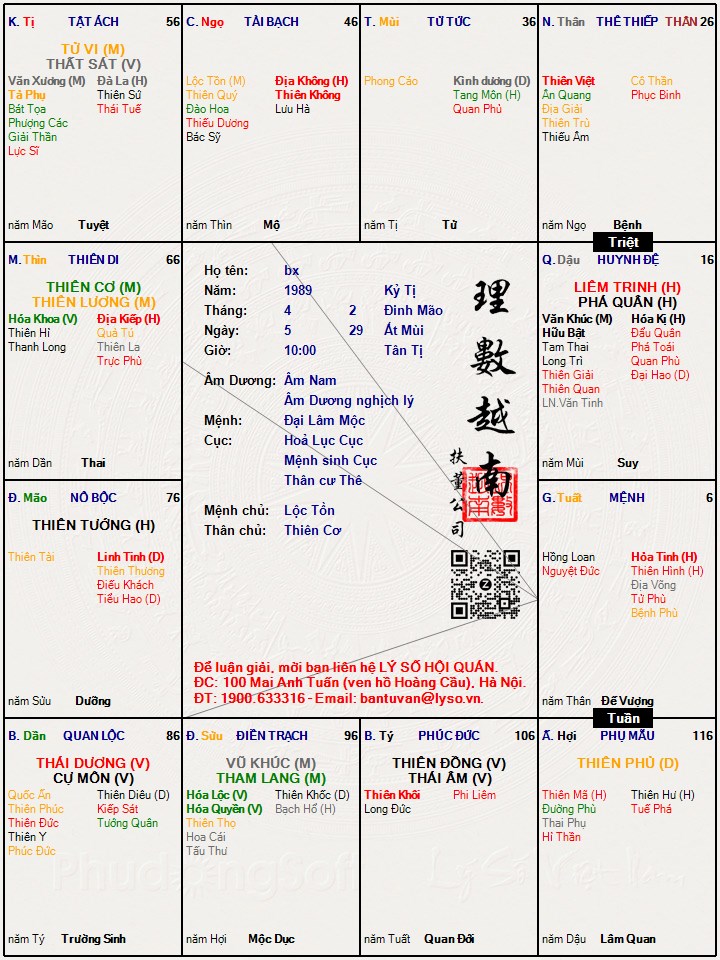 K. Tị TẬT ÁCH 56
TỬ VI (M)
THẤT SÁT (V)
Văn Xương (M) Đà La (H)
Tả Phụ Thiên Sứ
Bát Tọa Thái Tuế
Phượng Các
Giải Thần
Lực Sĩ
năm Mão Tuyệt
C. Ngọ TÀI BẠCH 46
Lộc Tồn (M) Địa Không (H)
Thiên Quý Thiên Không
Đào Hoa Lưu Hà
Thiếu Dương
Bác Sỹ
năm Thìn Mộ
T. Mùi TỬ TỨC 36
Phong Cáo Kình dương (D)
Tang Môn (H)
Quan Phủ
năm Tị Tử
N. Thân THÊ THIẾP THÂN 26
Thiên Việt Cô Thần
Ân Quang Phục Binh
Địa Giải
Thiên Trù
Thiếu Âm
năm Ngọ Bệnh
Triệt
M. Thìn THIÊN DI 66
THIÊN CƠ (M)
THIÊN LƯƠNG (M)
Hóa Khoa (V) Địa Kiếp (H)
Thiên Hỉ Quả Tú
Thanh Long Thiên La
Trực Phù
năm Dần Thai
Họ tên: bx
Năm: 1989 Kỷ Tị
Tháng: 4 2 Đinh Mão
Ngày: 5 29 Ất Mùi
Giờ: 10:00 Tân Tị
Âm Dương: Âm Nam
Âm Dương nghịch lý
Mệnh: Đại Lâm Mộc
Cục: Hoả Lục Cục
Mệnh sinh Cục
Thân cư Thê
Mệnh chủ: Lộc Tồn
Thân chủ: Thiên Cơ
理數越南
扶董公司
Để luận giải, mời bạn liên hệ LÝ SỐ HỘI QUÁN.
ĐC: 100 Mai Anh Tuấn (ven hồ Hoàng Cầu), Hà Nội.
ĐT: 1900.633316 - Email: bantuvan@lyso.vn.
Q. Dậu HUYNH ĐỆ 16
LIÊM TRINH (H)
PHÁ QUÂN (H)
Văn Khúc (M) Hóa Kị (H)
Hữu Bật Đẩu Quân
Tam Thai Phá Toái
Long Trì Quan Phù
Thiên Giải Đại Hao (D)
Thiên Quan
LN.Văn Tinh
năm Mùi Suy
Đ. Mão NÔ BỘC 76
THIÊN TƯỚNG (H)
Thiên Tài Linh Tinh (D)
Thiên Thương
Điếu Khách
Tiểu Hao (D)
năm Sửu Dưỡng
G. Tuất MỆNH 6
Hồng Loan Hỏa Tinh (H)
Nguyệt Đức Thiên Hình (H)
Địa Võng
Tử Phù
Bệnh Phù
năm Thân Đế Vượng
Tuần
B. Dần QUAN LỘC 86
THÁI DƯƠNG (V)
CỰ MÔN (V)
Quốc Ấn Thiên Diêu (D)
Thiên Phúc Kiếp Sát
Thiên Đức Tướng Quân
Thiên Y
Phúc Đức
năm Tý Trường Sinh
Đ. Sửu ĐIỀN TRẠCH 96
VŨ KHÚC (M)
THAM LANG (M)
Hóa Lộc (V) Thiên Khốc (D)
Hóa Quyền (V) Bạch Hổ (H)
Thiên Thọ
Hoa Cái
Tấu Thư
năm Hợi Mộc Dục
B. Tý PHÚC ĐỨC 106
THIÊN ĐỒNG (V)
THÁI ÂM (V)
Thiên Khôi Phi Liêm
Long Đức
năm Tuất Quan Đới
Ấ. Hợi PHỤ MẪU 116
THIÊN PHỦ (D)
Thiên Mã (H) Thiên Hư (H)
Đường Phù Tuế Phá
Thai Phụ
Hỉ Thần
năm Dậu Lâm Quan